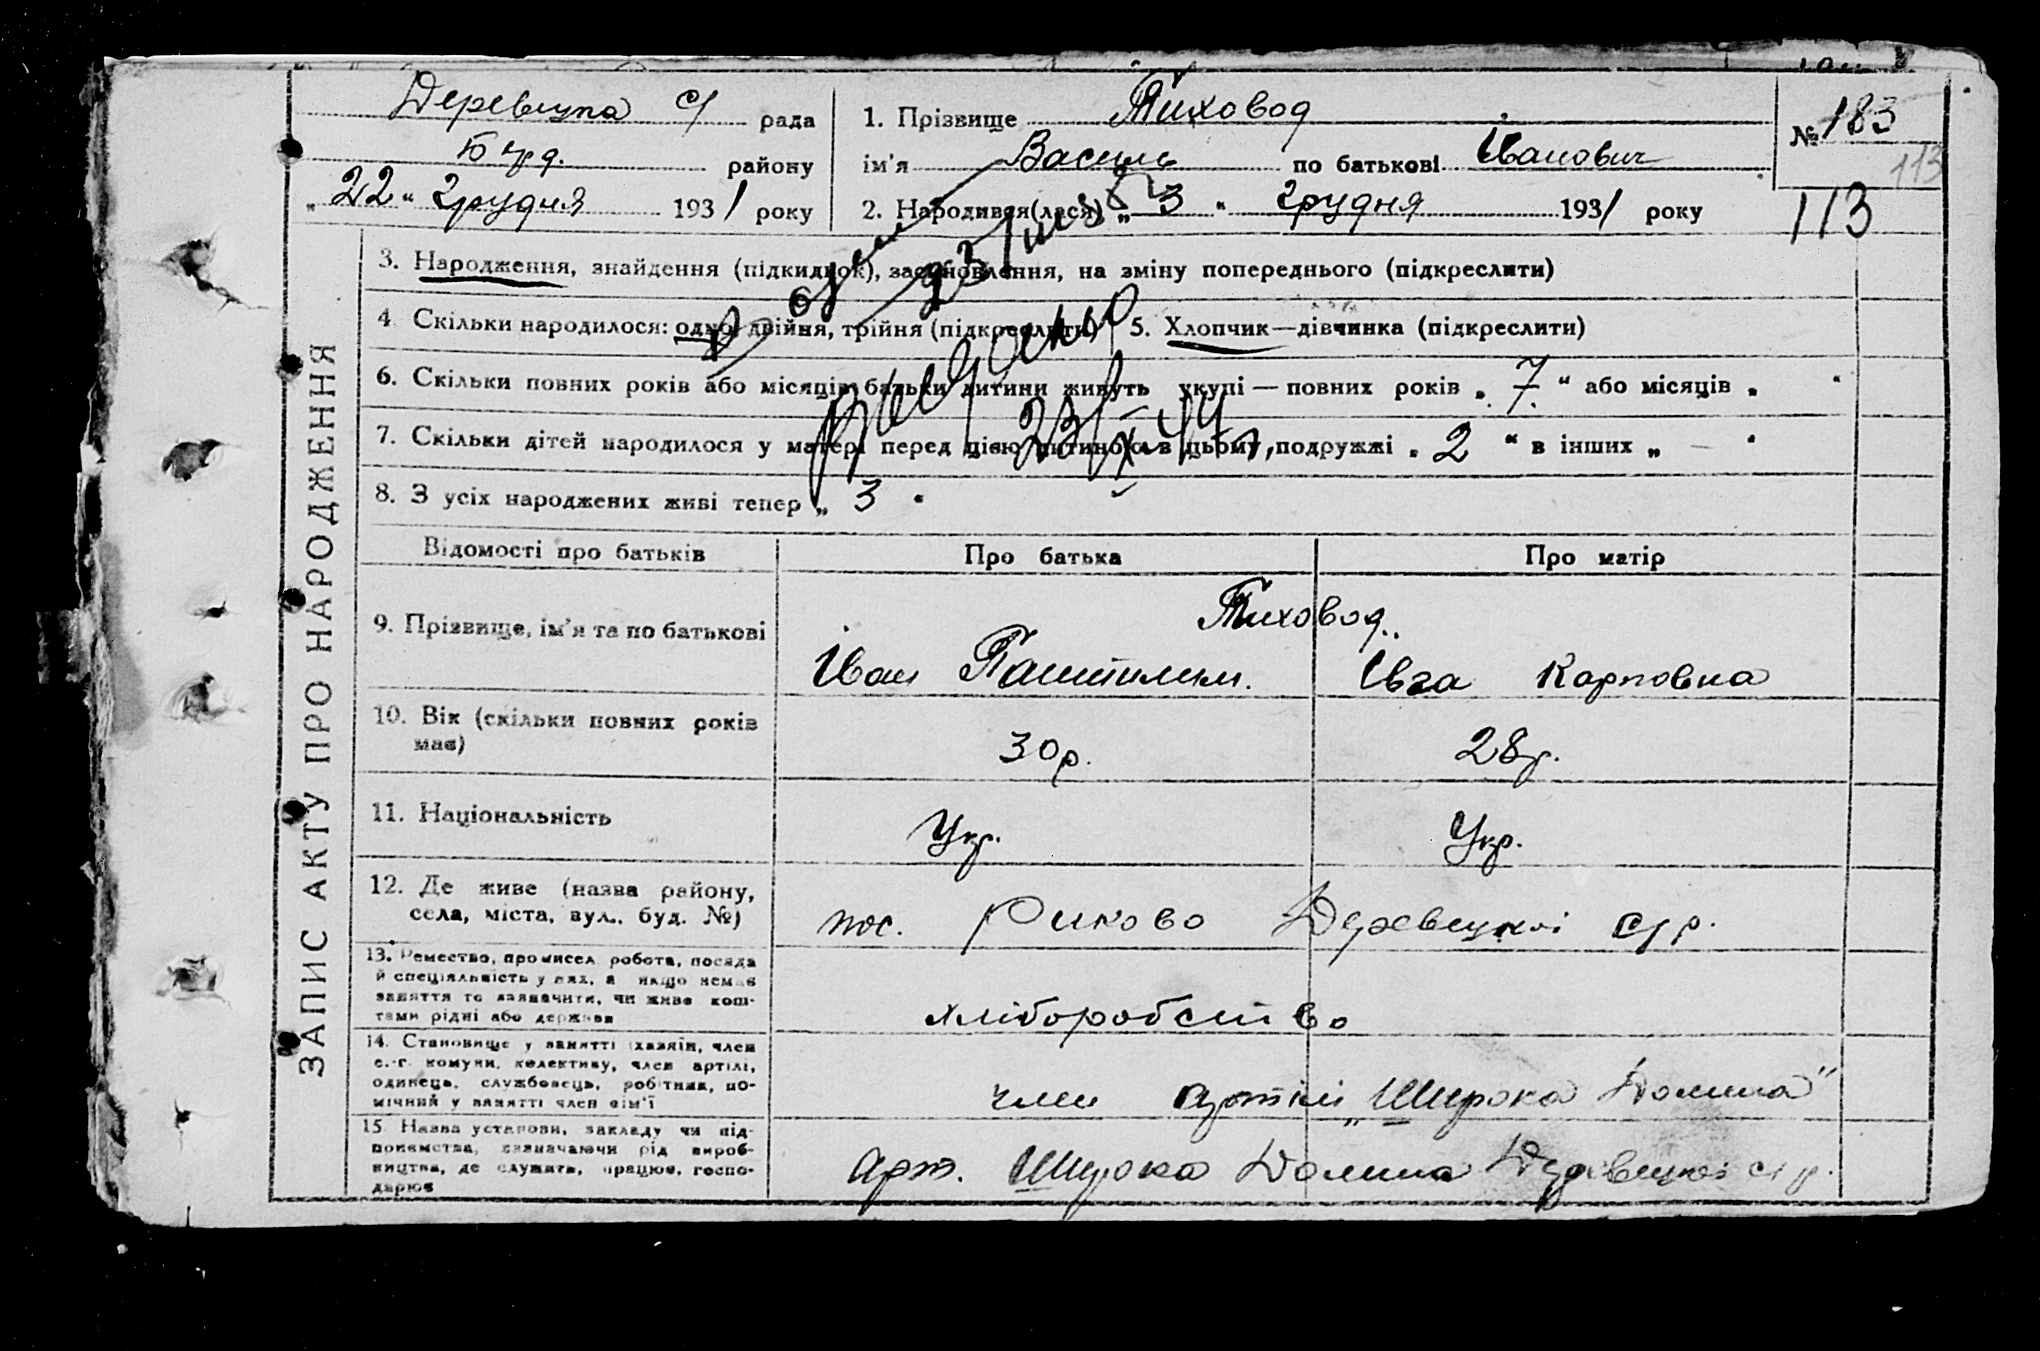 Деревецька с/ рада
Буд. району
„22“ грудня 1931 року
1. Прізвище Тиховод
ім'я Василь по батькові Іванович
2. Народився(лася) „3“ грудня 1931 року
№ 183
113
113
ЗАПИС АКТУ ПРО НАРОДЖЕННЯ
3. Народження, знайдення (підкидьок), засиновлення, на зміну попереднього (підкреслити)
4. Скільки народилося: одно, двійня, трійня (підкреслити) 5. Хлопчик—дівчинка (підкреслити)
6. Скільки повних років або місяців батьки дитини живуть укупі — повних років „7“ або місяців „ “
7. Скільки дітей народилося у матері перед цією дитиною в цьому подружжі „2“ в інших „—“
8. З усіх народжених живі тепер „3“
23/XI-44
Відомості про батьків Про батька Про матір
9. Прізвище, ім'я та по батькові
Тиховод
Іван Ївга Карповна
10. Вік (скільки повних років має)
30р. 28р.
11. Національність Укр. Укр.
12. Де живе (назва району, села, міста, вул., буд. №)
пос. Риково Деревецької с/р.
13. Ремество, промисел, робота, посада й спеціяльність у них, а якщо немає заняття то зазначити, чи живе коштами рідні або держави
хліборобство
14. Становище у занятті (хазяїн, член с.-г. комуни, колективу, член артілі, одинець, службовець, робітник, помічний у занятті член сім'ї
член артілі „Широка Долина“
15. Назва установи, закладу чи підприємства, зазначаючи рід виробництва, де служить, працює, господарює
Арт. Широка Долина Деревецької с/р.